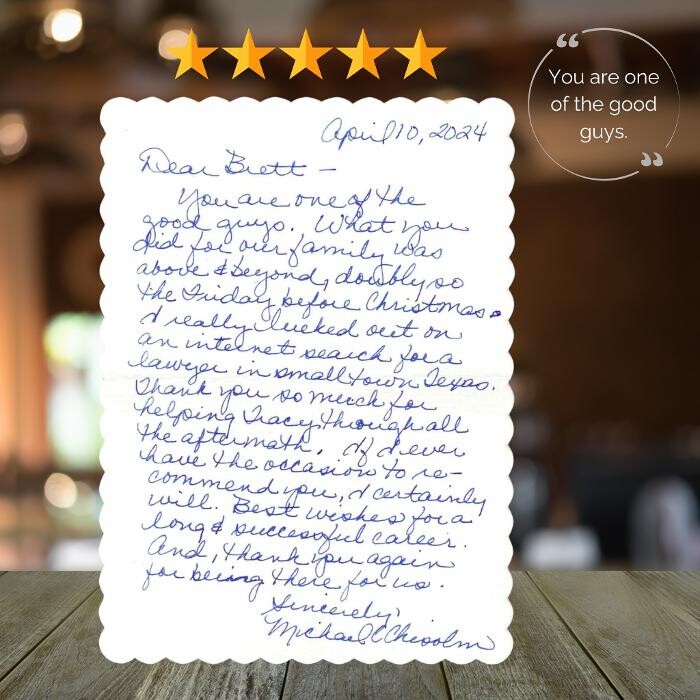 “
You are one
of the good
guys.
”
April 10, 2024
Dear Brett –
You are one of the
good guys. What you
did for our family was
above & beyond, doubly so
the Friday before Christmas.
I really lucked out on
an internet search for a
lawyer in small town Texas.
Thank you so much for
helping Tracy through all
the aftermath. If I ever
have the occasion to re-
commend you, I certainly
will. Best wishes for a
long & successful career.
And, thank you again
for being there for us.
Sincerely,
Michael C Chisolm